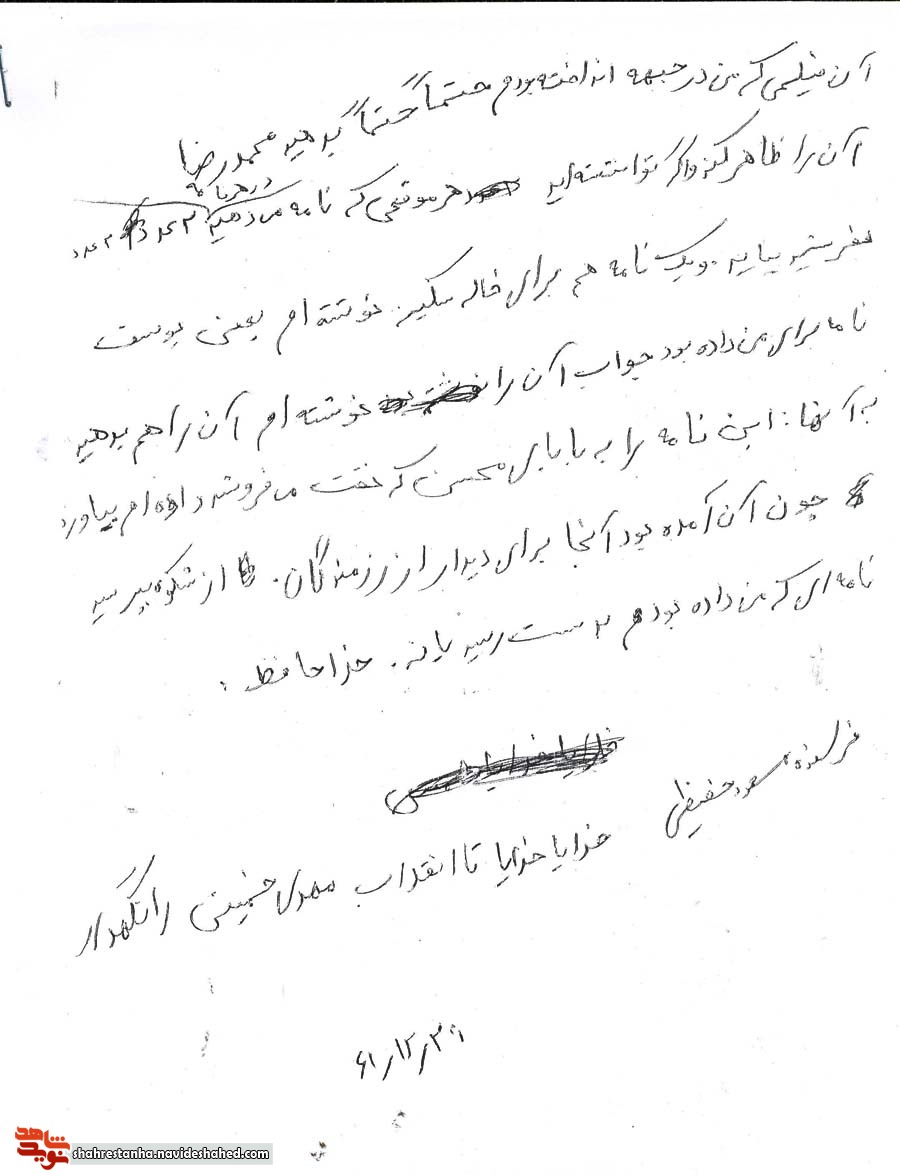 آن فیلمی که من در جبهه انداخته بودم حتماً حتماً بدهید محمدرضا
آن را ظاهر کند و اگر توانسته‌اید هر موقعی که نامه می‌دهید در هر نامه ۲ عدد ۳ عدد
بفرستید بیاید. و یک نامه هم برای خاله سکینه نوشته‌ام یعنی یوسف
نامه برای من داده بود جواب آن را نوشته‌ام آن را هم بدهید
به آنها. این نامه را به بابای محسن که نفت می‌فروشد داده‌ام بیاورد
چون آن آمده بود آنجا برای دیدار از رزمندگان. از شکوه بپرسید
نامه‌ای که من داده بودم بدست رسید یا نه. خداحافظ.
فرستنده مسعود حفیظی
خدایا خدایا تا انقلاب مهدی خمینی را نگهدار
۶۱/۱۲/
نوید شاهد
shahrestanha.navideshahed.com